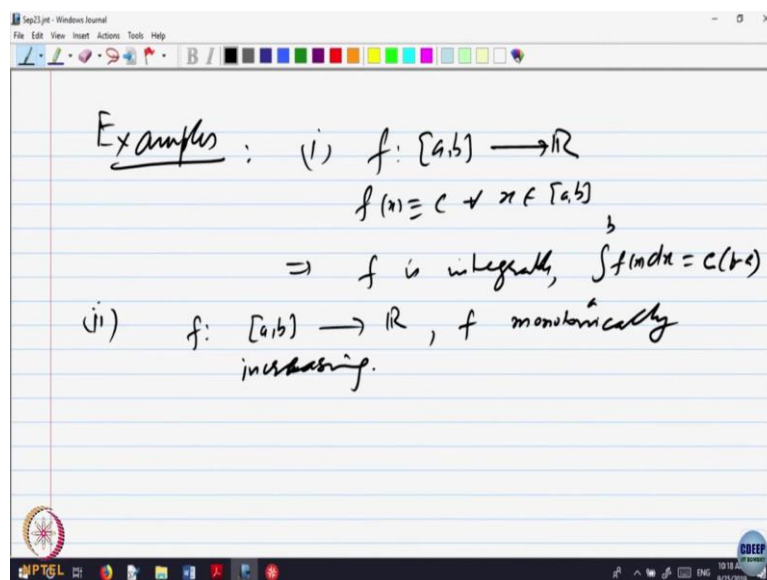 Sep23.jnt - Windows Journal
File Edit View Insert Actions Tools Help
B I
Examples : (i) f: [a,b] → R
f(x) ≡ c ∀ x ∈ [a,b]
⇒ f is integrable, ∫_a^b f(x)dx = c(b-a)
(ii) f: [a,b] → R, f monotonically
increasing.
NPTEL
CDEEP
IIT BOMBAY
ENG
10:18 A